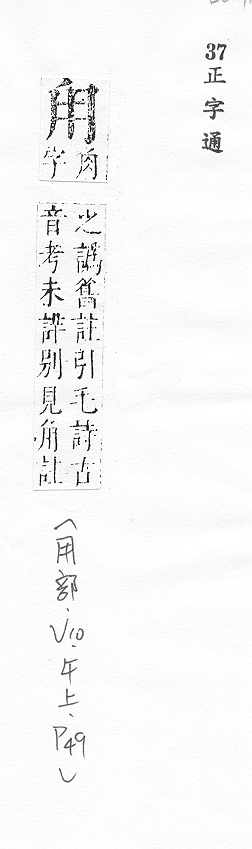 37正字通
甪
角
字
之譌舊註引毛詩古
音考未詳別見角註
（用部．V10．午上．P49）